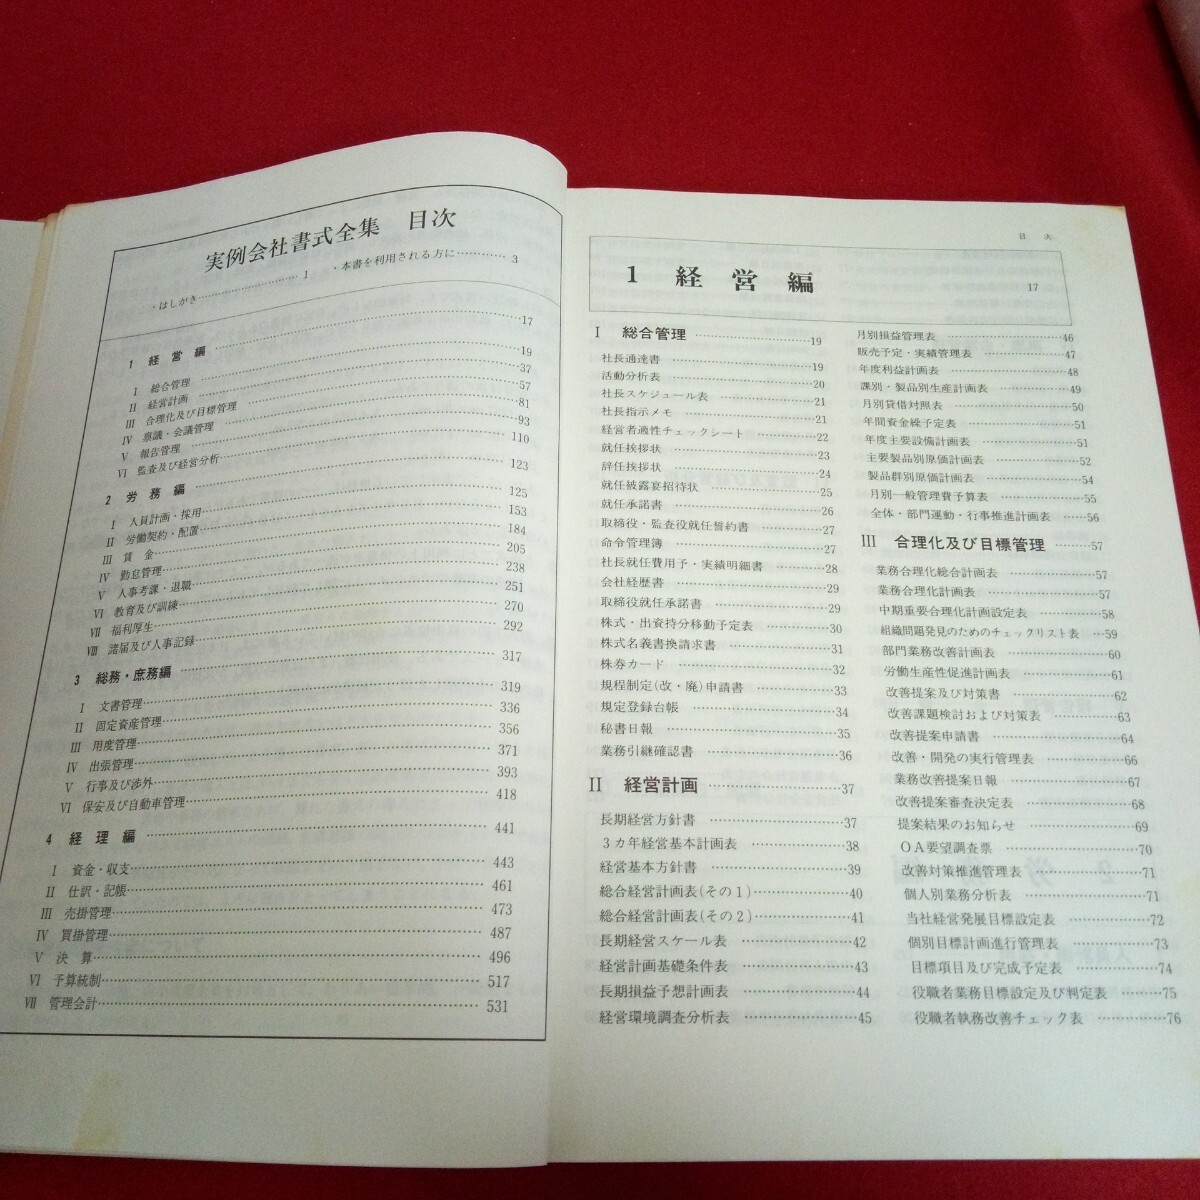 実例会社書式全集 目次
・はしがき…………………………1 ・本書を利用される方に…………3
1 経営編……17
Ⅰ 総合管理……19
Ⅱ 経営計画……37
Ⅲ 合理化及び目標管理……57
Ⅳ 稟議・会議管理……81
Ⅴ 報告管理……93
Ⅵ 監査及び経営分析……110
2 労務編……123
Ⅰ 人員計画・採用……125
Ⅱ 労働契約・配置……153
Ⅲ 賃金……184
Ⅳ 勤怠管理……205
Ⅴ 人事考課・退職……238
Ⅵ 教育及び訓練……251
Ⅶ 福利厚生……270
Ⅷ 諸届及び人事記録……292
3 総務・庶務編……317
Ⅰ 文書管理……319
Ⅱ 固定資産管理……336
Ⅲ 用度管理……356
Ⅳ 出張管理……371
Ⅴ 行事及び渉外……393
Ⅵ 保安及び自動車管理……418
4 経理編……441
Ⅰ 資金・収支……443
Ⅱ 仕訳・記帳……461
Ⅲ 売掛管理……473
Ⅳ 買掛管理……487
Ⅴ 決算……496
Ⅵ 予算統制……517
Ⅶ 管理会計……531
目 次
1 経営編 17
Ⅰ 総合管理……19
社長通達書……19
活動分析表……20
社長スケジュール表……21
社長指示メモ……21
経営者適性チェックシート……22
就任挨拶状……23
辞任挨拶状……24
就任披露宴招待状……25
就任承諾書……26
取締役・監査役就任誓約書……27
命令管理簿……27
社長就任費用予・実績明細書……28
会社経歴書……29
取締役就任承諾書……29
株式・出資持分移動予定表……30
株式名義書換請求書……31
株券カード……32
規程制定(改・廃)申請書……33
規定登録台帳……34
秘書日報……35
業務引継確認書……36
Ⅱ 経営計画……37
長期経営方針書……37
3カ年経営基本計画表……38
経営基本方針書……39
総合経営計画表(その1)……40
総合経営計画表(その2)……41
長期経営スケール表……42
経営計画基礎条件表……43
長期損益予想計画表……44
経営環境調査分析表……45
月別損益管理表……46
販売予定・実績管理表……47
年度利益計画表……48
課別・製品別生産計画表……49
月別貸借対照表……50
年間資金繰予定表……51
年度主要設備計画表……51
主要製品別原価計画表……52
製品群別原価計画表……54
月別一般管理費予算表……55
全体・部門運動・行事推進計画表……56
Ⅲ 合理化及び目標管理……57
業務合理化総合計画表……57
業務合理化計画表……57
中期重要合理化計画設定表……58
組織問題発見のためのチェックリスト表……59
部門業務改善計画表……60
労働生産性促進計画表……61
改善提案及び対策書……62
改善課題検討および対策表……63
改善提案申請書……64
改善・開発の実行管理表……66
業務改善提案日報……67
改善提案審査決定表……68
提案結果のお知らせ……69
OA要望調査票……70
改善対策推進管理表……71
個人別業務分析表……71
当社経営発展目標設定表……72
個別目標計画進行管理表……73
目標項目及び完成予定表……74
役職者業務目標設定及び判定表……75
役職者執務改善チェック表……76